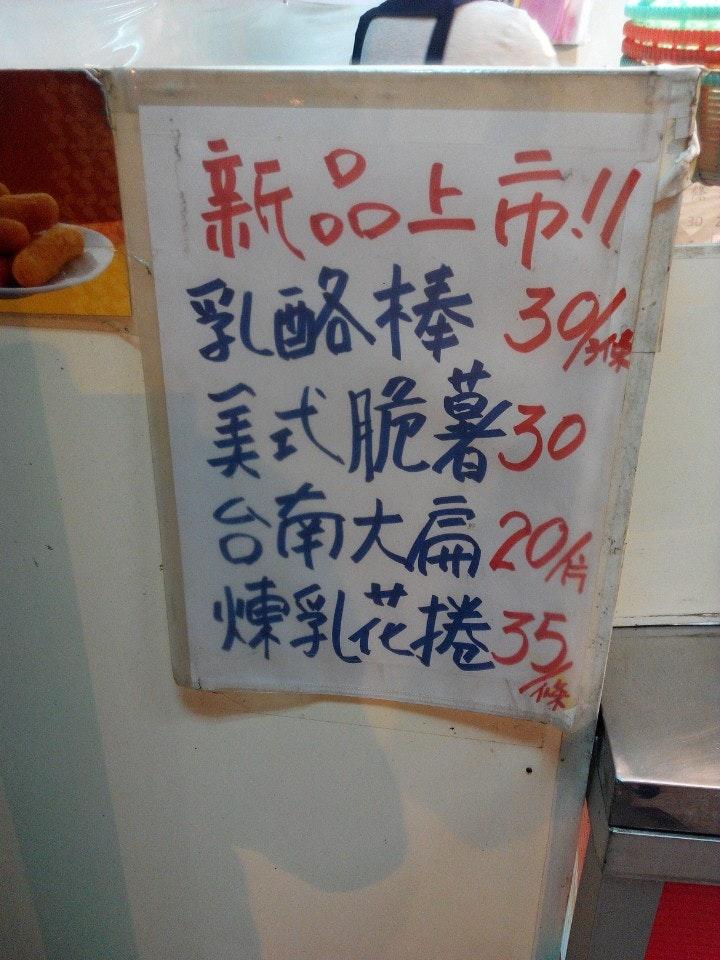 新品上市!!
乳酪棒 30/3條
美式脆薯 30
台南大扁 20/片
煉乳花捲 35/條